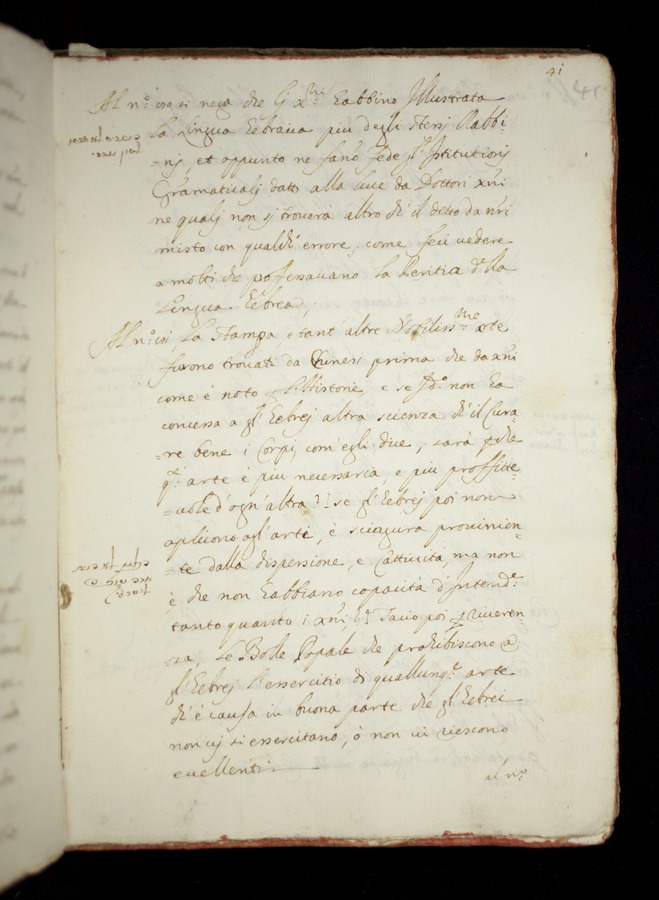 41
Al n.º 110 si nega che Gl' x.ni habbino Illustrata
la Lingua Hebraica più degli stessi Rabbi-
-ni, et appunto ne fanº fede gl' Istitutioni
Gramaticali dati alla luce da Dottori xni
ne quali non si troverà altro ch' il detto da nri
misto con qualch' errore, come feci vedere
a molti che professavano la Peritia della
Lingua Hebrea,
Al n.º 111 La stampa e tant altre Nobiliss.me arte
furono trovati da Chinesi prima che da xni
come è noto p l'Historie, e se Id.º non ha
concessa a gl' Hebrej altra scienza ch' il Cura-
-re bene i Corpi, com' egli dice, sarà p che
q.ª arte è più necessaria, e più proffitte-
-vole d'ogn'altra, se gl' Hebrej poi non
apliconº agl' arti, è sciagura provinien-
-te dalla dispersione, e Cattività, ma non
è che non habbiano capacità d'Intend.e
tanto quanto i xni, Tacio poi p Riveren-
-za, le Bolle Papale che prohibiscono a
gl' Hebrej l'essercitio di quallunq.e arte
ch' è causa in buona parte che gl' Hebrei
non vi si essercitano, ò non vi riescono
eccellenti
al n.º